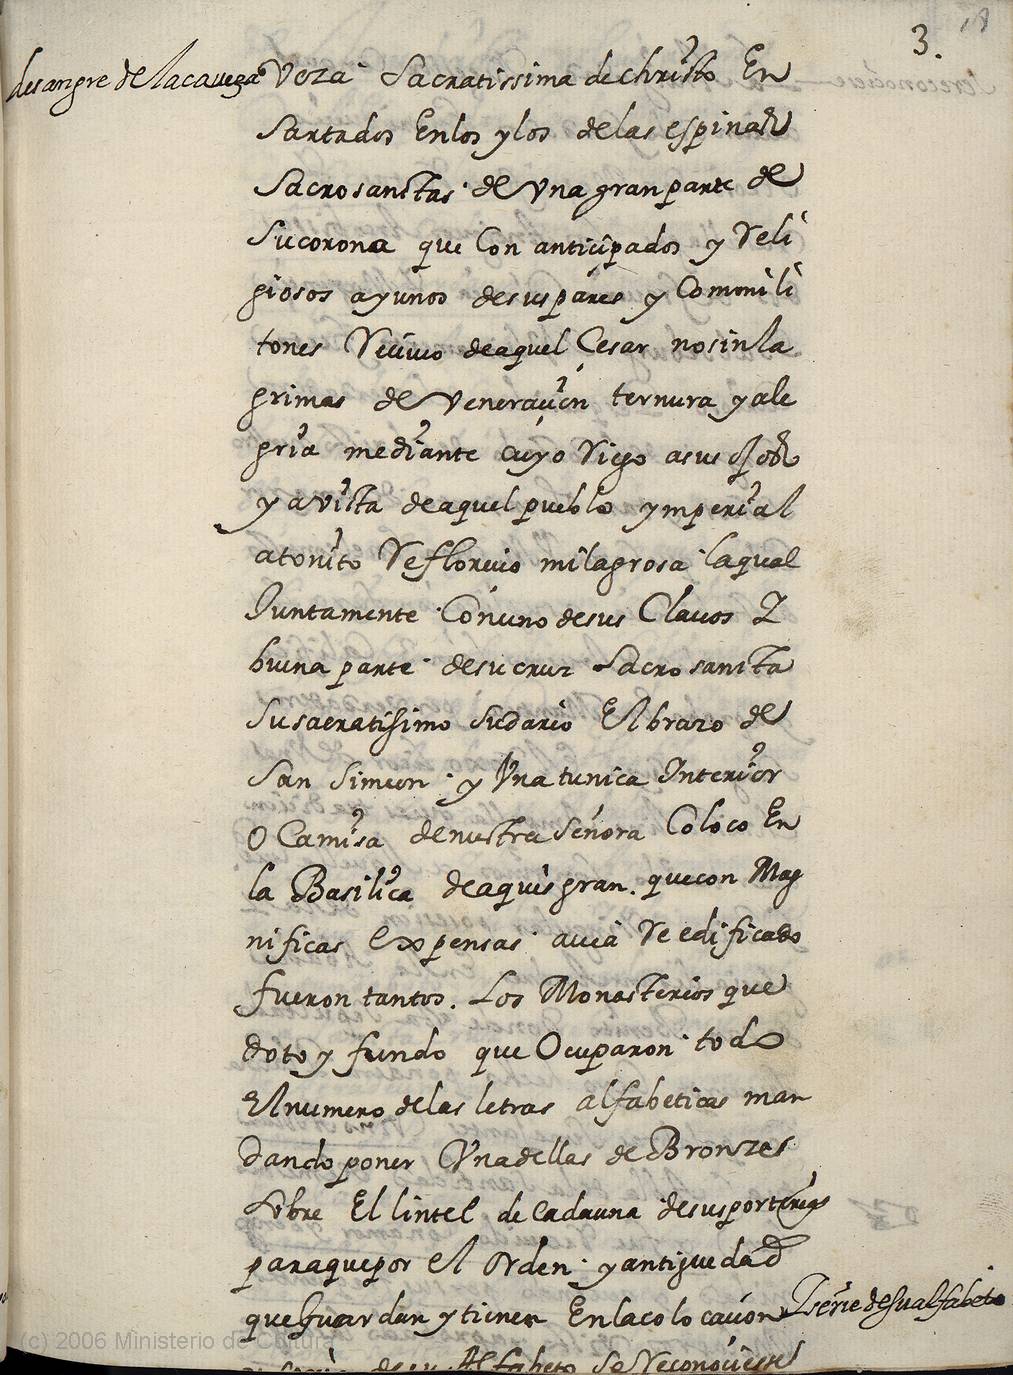 3.
18
de sangre de la cavega
veza Sacratissima de christo En
Sartados En los ylos de las espinas
Sacrosanctas de Vna gran parte de
su corona que Con anticipados y Reli
giosos ayunos de sus pares y Commili
tones Recivio de aquel Cesar no sin la
grimas de Veneracion ternura y ale
gria mediante cuyo Riego a sus Ojos
y a vista de aquel pueblo ymperial
atonito Reflorecio milagrosa la qual
Juntamente Con uno de sus Clauos I
buena parte de su cruz Sacrosancta
su sacratissimo sudario El brazo de
San Simeon y Vna tunica Interior
O Camisa de nuestra Señora Coloco En
la Basilica de aquisgran. que con Mag
nificas Expensas auia Reedificado
fueron tantos. Los Monasterios que
doto y fundo que Ocuparon todo
El numero de las letras alfabeticas man
dando poner Vna dellas de Bronzes
sobre El lintel de cada una de sus porterias
para que por el Orden y antiguedad
que Guardan y tienen En la colocacion
I serie de su alfabeto
de su Alfabeto Se Reconociesse
(c) 2006 Ministerio de Cultura